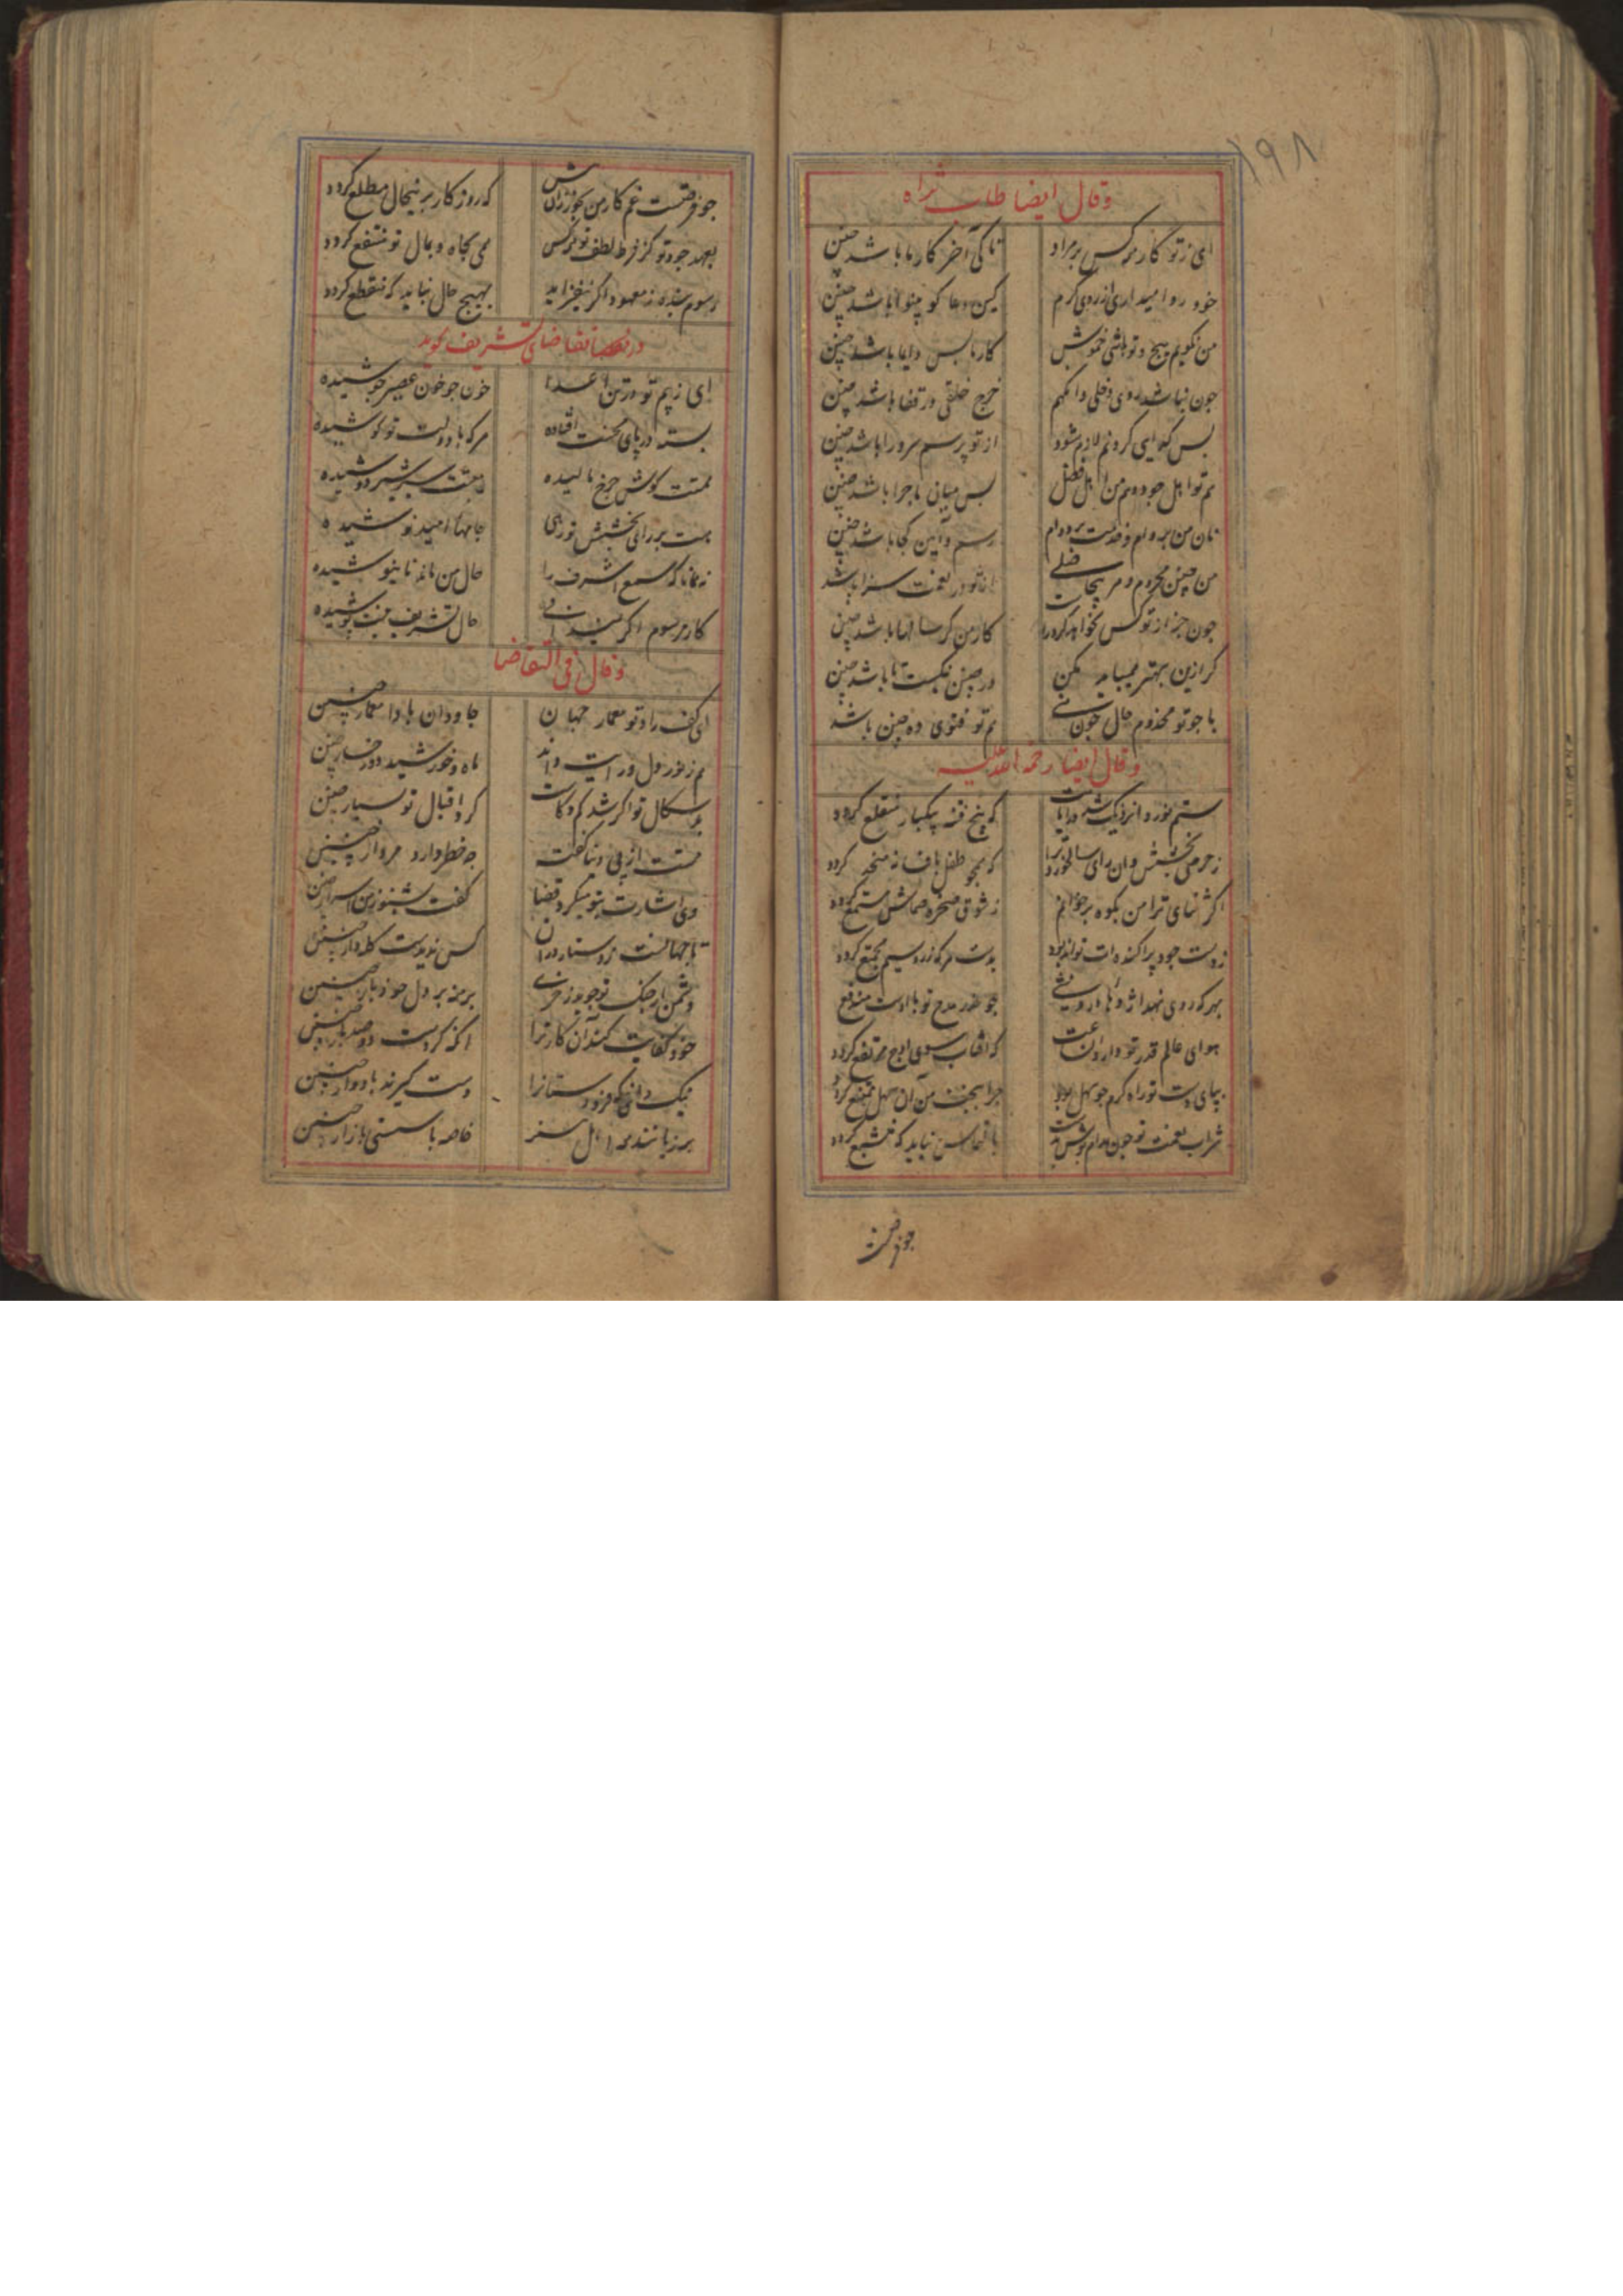 ۱۹۸
وقال ایضا طاب ثراه
ای ز تو کار همه کس بر مراد تا کی آخر کار ما باشد چنین
خود روا میداری از روی کرم کین دعا کو بینوا باشد چنین
من نکویم هیچ و تو باشی خموش کارها بس دایما باشد چنین
جون نباشد روی دخلی دانکهم خرج خلقی در قفا باشد چنین
بس کدایی کردنم لازم شود از تو پرسم سرورا باشد چنین
هم تو اهل جود و هم من اهل فضل بس میانی ماجرا باشد چنین
نان من بر وام و خدمت بر دوام رسم و آیین کجا باشد چنین
من چنین محروم و هر بیجا فضلی در نعمت سزا باشد
جون جز از تو کس نخواهد کرد کار من کر سالها باشد چنین
کر ازین بهتر همیباید بکن ور چنین نیکست تا باشد چنین
با جو تو مخدوم حال جون منی هم تو فتوی ده چنین باشد
وقال ایضا رحمة الله علیه
ستم نورد که بیخ فتنه بیکبار منقلع کردد
ز حرص بخشش وان رای سالخورد ترا که همجو طفل بافسانه منخدع کردد
اکر ثنای ترا من بکوه برخوانم ز شوق صخره صماش مستمع کردد
ز دست جود پراکنده ات تواند بود بدست هر که زر و سیم مجتمع کردد
بهر که روی نهد اژدهای درویشی
هوای عالم قدر تو دارد آن رفعت که آفتاب سوی اوج مرتفع کردد
بپای دست تو راه کرم جو سهل بود چرا ببخت من آن سهل ممتنع کردد
شراب نعمت تو جون مدام نباید که منتشع کردد
جو فرصتست
جو فرصتست غم کار من بخور زان پیش که روزکار برینحال مطلع کردد
بعهد جود تو کز فرط لطف تو هر کس همی بجاه و بمال تو منتفع کردد
رسوم بنده ز معهود اکر نیفزاید بهیچ حال نباید که منقطع کردد
در تقاضای تشریف کوید
ای ز بیم تو در تن اعدا خون جو خون عصیر جوشیده
بسته در پای محنت افتاده هر که با دولت تو کوشیده
همتت کوش چرخ مالیده
هست بر رای بخشش تو رهی جامهاء امید نوشیده
نه همانا که سمع اشرف را حال من مانده نانیوشیده
کار مرسوم اکر حال تشریف نیست پوشیده
وقال فی التقاضا
ای کف راد تو معمار جهان جاودان بادا معمار چنین
هم ز نور دل و رایت ماه و خورشید
بدسکال تو اکر شد کم و کاست کرد اقبال تو بسیار چنین
همتت از پی دنیا کفتت چه خطر دارد مردار چنین
وی اشارت بتو میکرد قضا کفت بشنو ز من اسرار چنین
تا جهانست ز دستاردران کس ندیدست کله دار چنین
دشمن ار جنک تو جوید ز خری برمنه بر دل خود بار چنین
خود کفایت کند آن کار ترا آنکه کردست دو صد بار چنین
نیک دانی که خردمستانرا دست کیرند بادوار چنین
بر زبانند همه اهل هنر خاصه با سستی بازار چنین